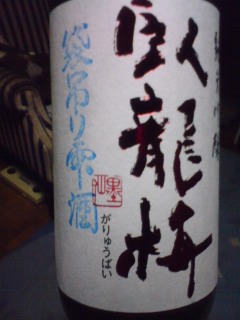 純米吟醸
臥龍梅
がりゅうばい
袋吊り雫酒